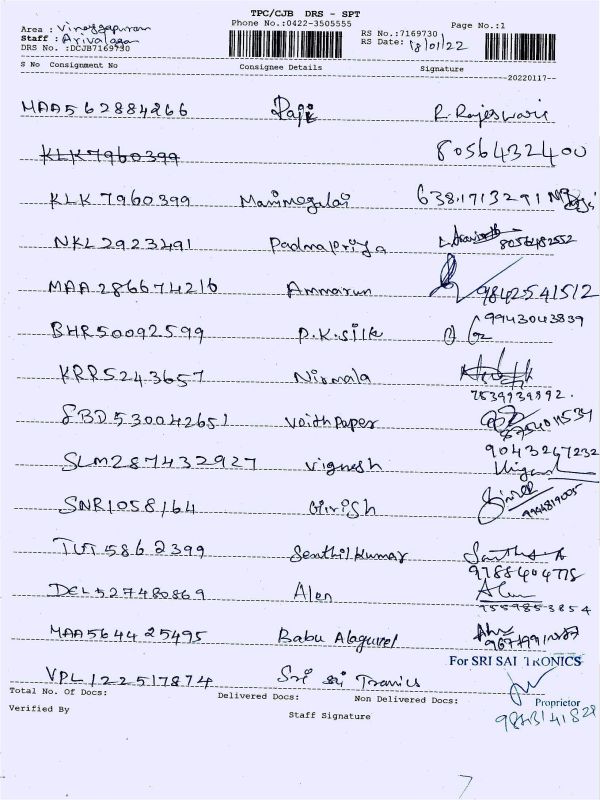 TPC/CJB DRS - SPT
Area : Vinayagapuram Phone No.:0422-3505555 Page No.:1
Staff : Arivalagan RS No.:7169730
DRS No. :DCJB7169730 RS Date: 18/01/22
S No Consignment No Consignee Details Signature
20220117
MAA562884266 Raji R. Rajeswari
KLK7960399 8056432400
KLK7960399 Manimegalai 6381713291
NKL2923491 Padmapriya 8056482552
MAA286674216 Ammarun 9842541512
BHR50092599 P.K.Silk 9943043839
KRR5243657 Nirmala
7539939892.
SBD530042651 Voith Paper 8754011534
SLM2874432927 Vignesh 9043267232
SNR1058164 Girish 9944819005
TUT5862399 Senthil Kumar
9788404775
DEL527480869 Alen
9559853854
MAA564425495 Babu Alaguvel
For SRI SAI TRONICS
VPL122517874 Sri Sai Tronics
Total No. Of Docs: Delivered Docs: Non Delivered Docs:
Proprietor
Verified By Staff Signature
7